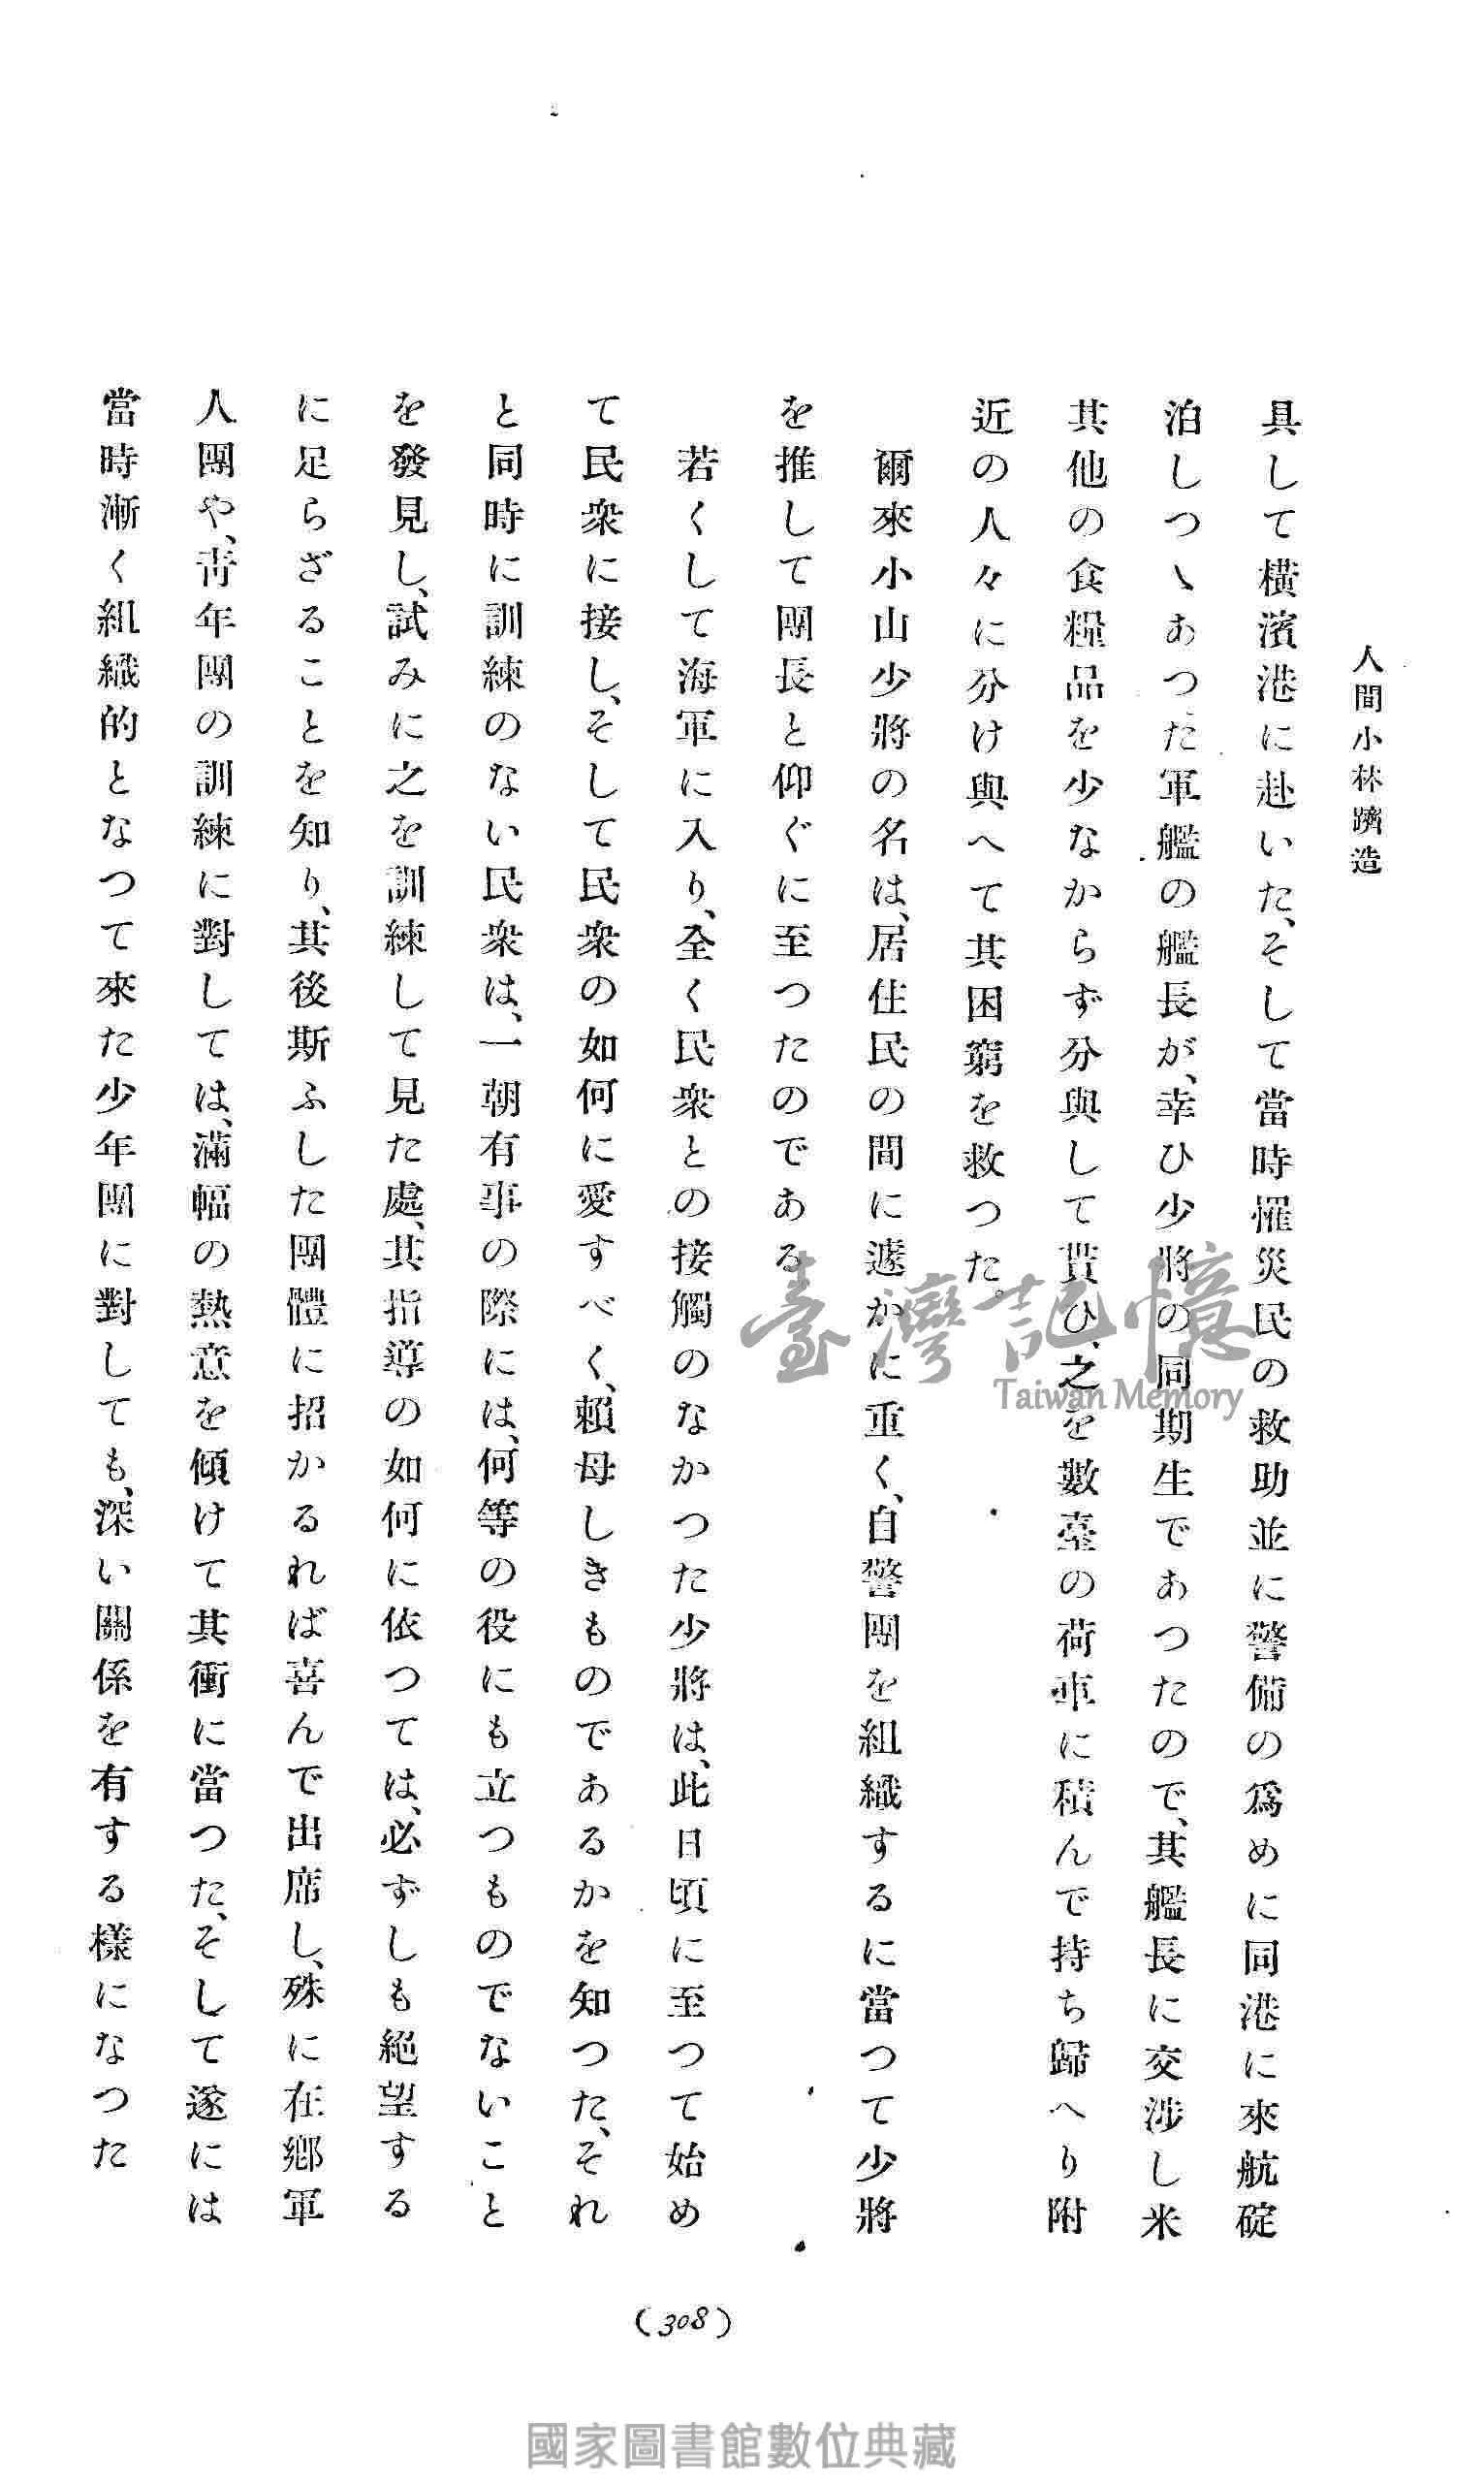 人間小林躋造
具して橫濱港に赴いた、そして當時罹災民の救助並に警備の爲めに同港に來航碇
泊しつゝあつた軍艦の艦長が、幸ひ少將の同期生であつたので、其艦長に交涉し米
其他の食糧品を少なからず分與して貰ひ、之を數臺の荷車に積んで持ち歸へり附
近の人々に分け與へて其困窮を救つた。
爾來小山少將の名は、居住民の間に遽かに重く、自警團を組織するに當つて少將
を推して團長と仰ぐに至つたのである
若くして海軍に入り、全く民衆との接觸のなかつた少將は、此日頃に至つて始め
て民衆に接し、そして民衆の如何に愛すべく、賴母しきものであるかを知つた、それ
と同時に訓練のない民衆は、一朝有事の際には、何等の役にも立つものでないこと
を發見し、試みに之を訓練して見た處、其指導の如何に依つては、必ずしも絕望する
に足らざることを知り、其後斯ふした團體に招かるれば喜んで出席し、殊に在鄕軍
人團や、靑年團の訓練に對しては、滿幅の熱意を傾けて其衝に當つた、そして遂には
當時漸く組織的となつて來た少年團に對しても、深い關係を有する樣になつた
(308)
臺灣記憶
Taiwan Memory
國家圖書館數位典藏